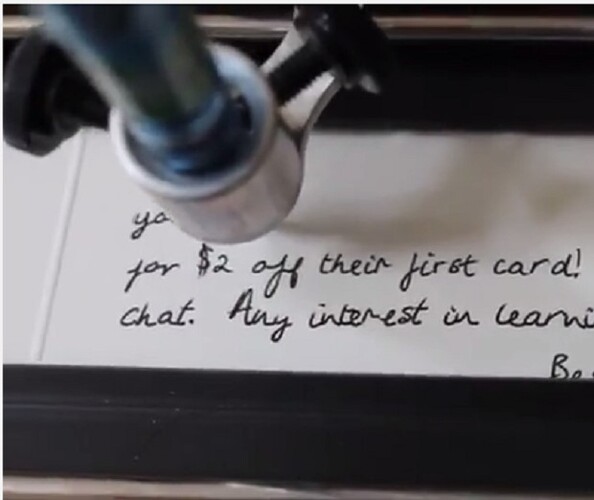 yo
for $2 off their first card!
chat. Any interest in learni
Be